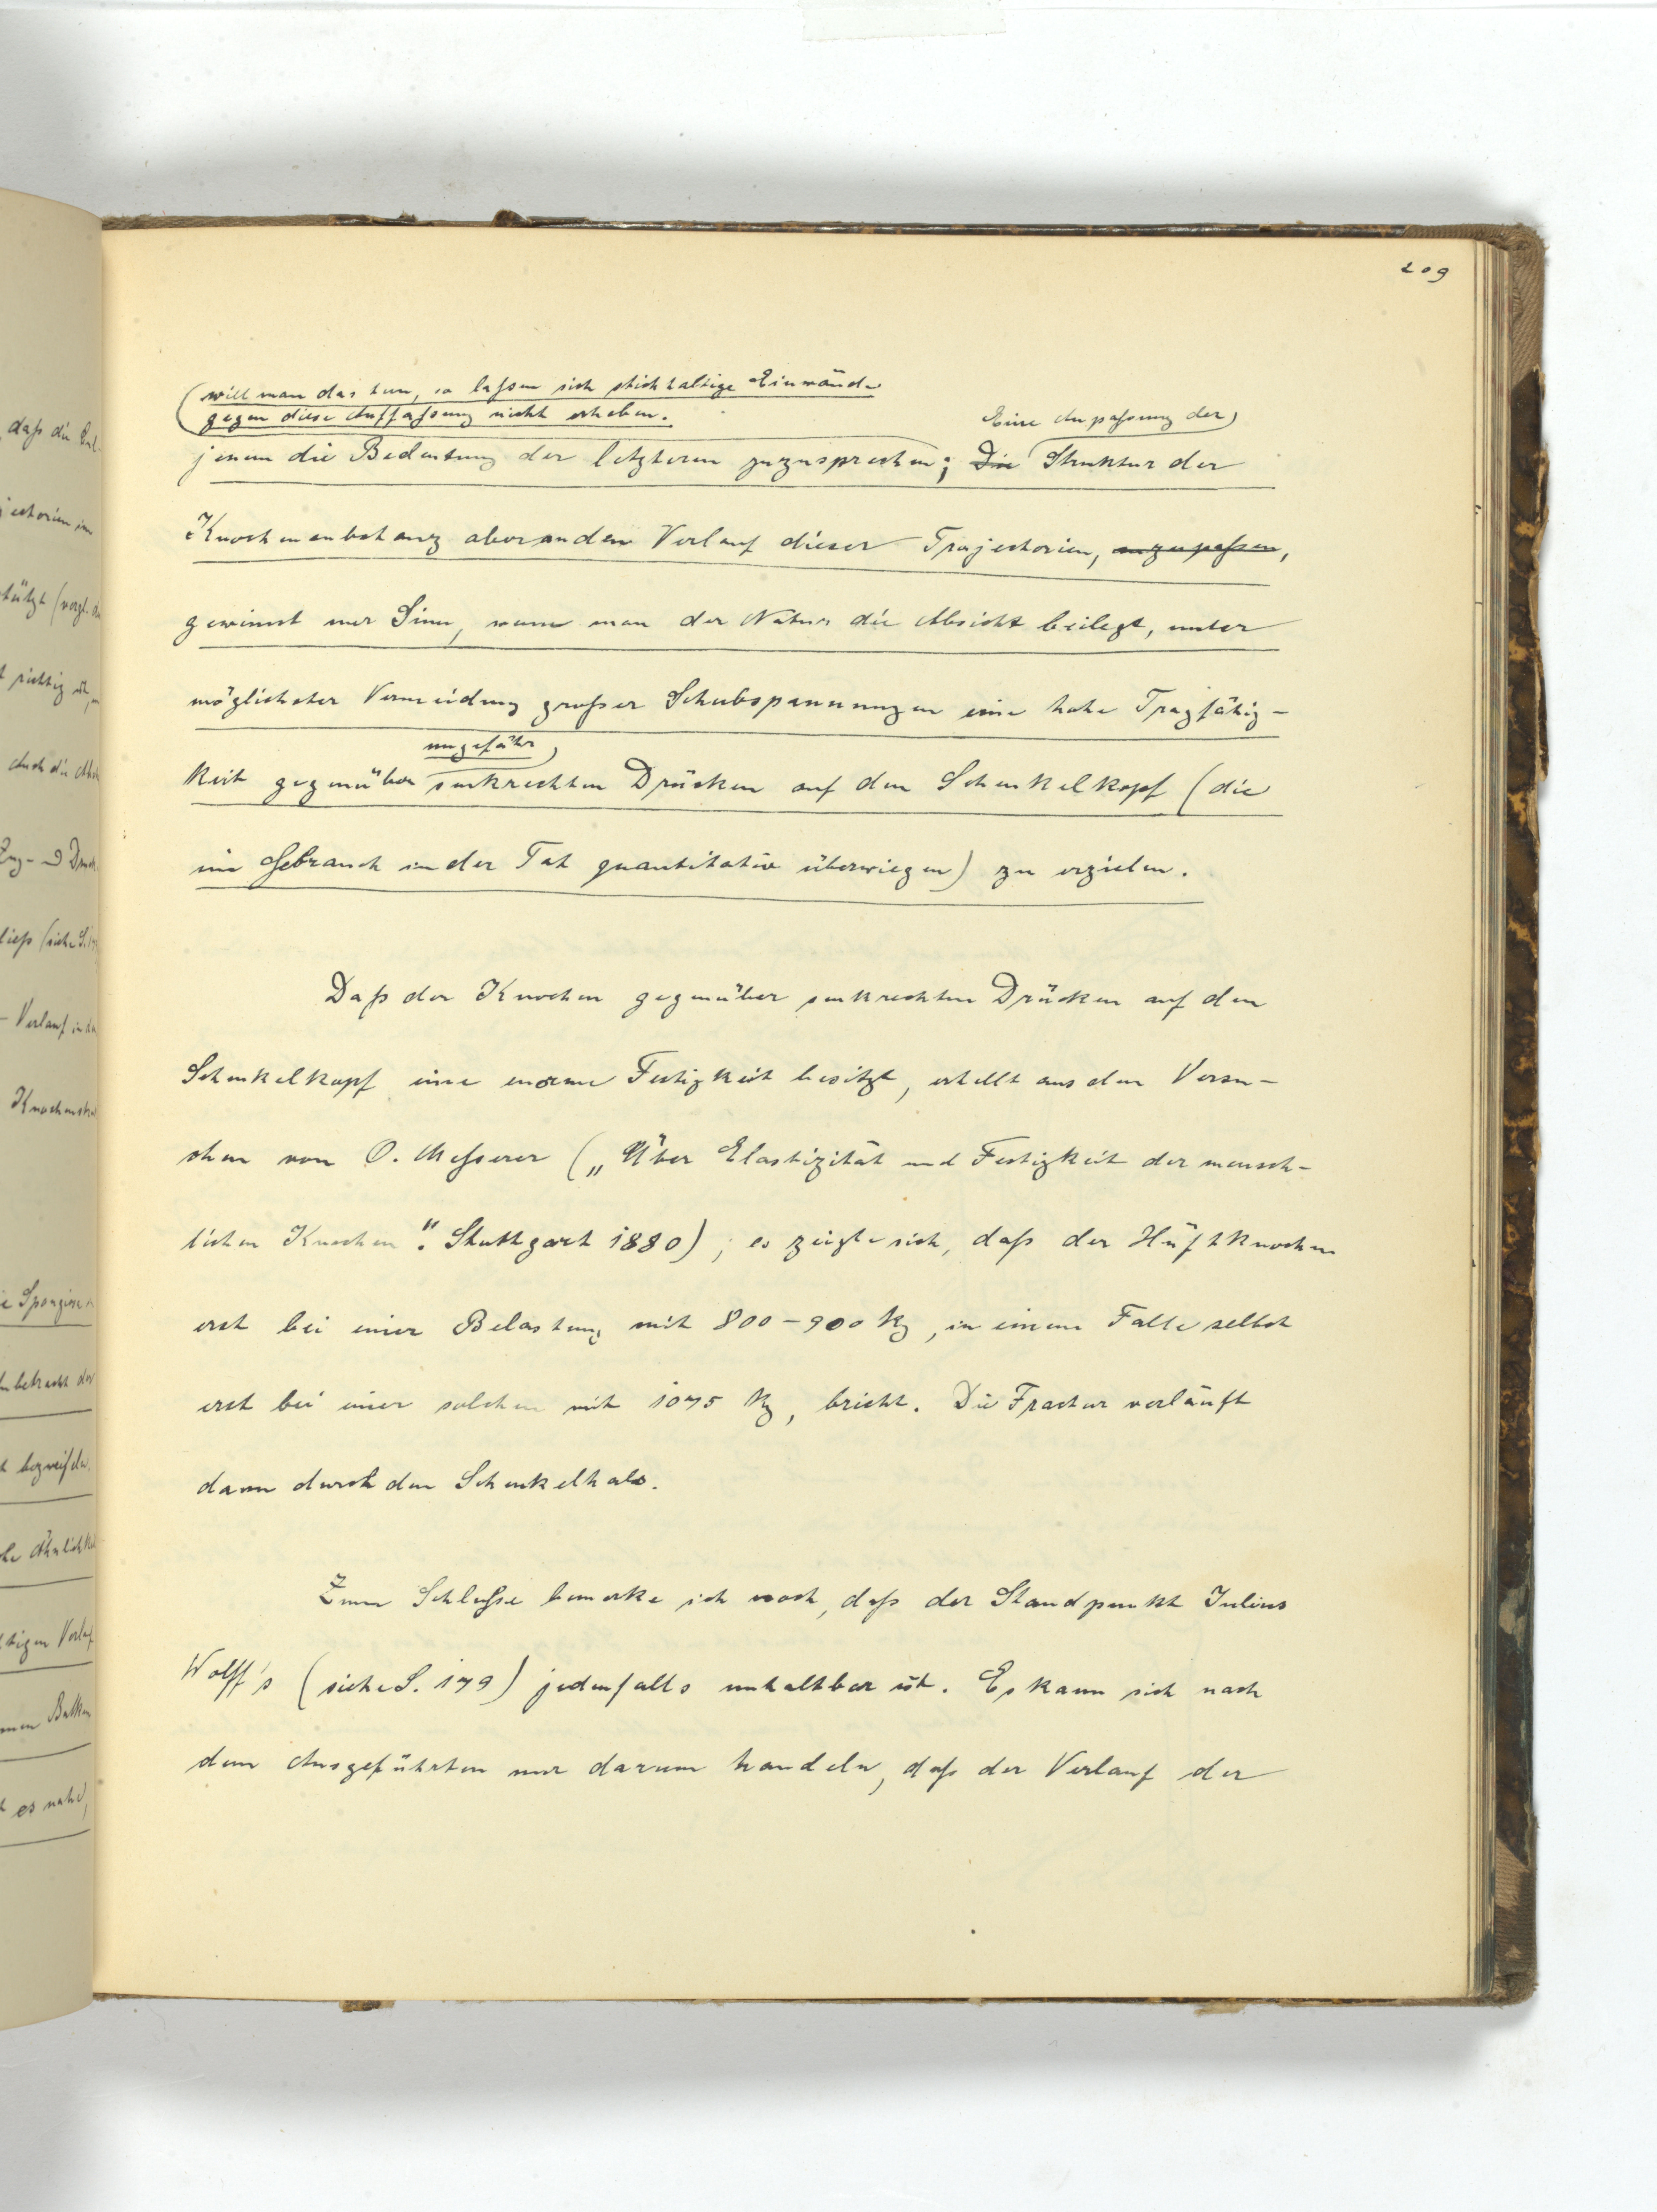 209
(will man das tun, so laßen sich stichhaltige Einwände
gegen diese Auffaßung nicht erheben.
Eine Anpaßung der)
jenem die Bedeutung der letzteren zuzusprechen; Die Struktur der
Knochensubstanz aber an den Verlauf dieser Trajectorien, anzupaßen,
gewinnt nur Sinn, wenn man der Natur die Absicht beilegt, unter
möglichster Vermeidung großer Schubspannungen eine hohe Tragfähig-
ungefähr)
keit gegenüber senkrechten Drücken auf den Schenkelkopf (die
im Gebrauch in der Tat quantitativ überwiegen) zu erzielen.
Daß der Knochen gegenüber senkrechten Drücken auf den
Schenkelkopf eine enorme Festigkeit besitzt, erhellt aus den Versu-
chen von O. Meßerer („Über Elastizität und Festigkeit der mensch-
lichen Knochen“. Stuttgart 1880); es zeigte sich, daß der Hüftknochen
erst bei einer Belastung mit 800-900 kg, in einem Falle selbst
erst bei einer solchen mit 1075 kg, bricht. Die Fractur verläuft
dann durch den Schenkelhals.
Zum Schluße bemerke ich noch, daß der Standpunkt Julius
Wolff's (siehe S. 179) jedenfalls unhaltbar ist. Es kann sich nach
dem Ausgeführten nur darum handeln, daß der Verlauf der